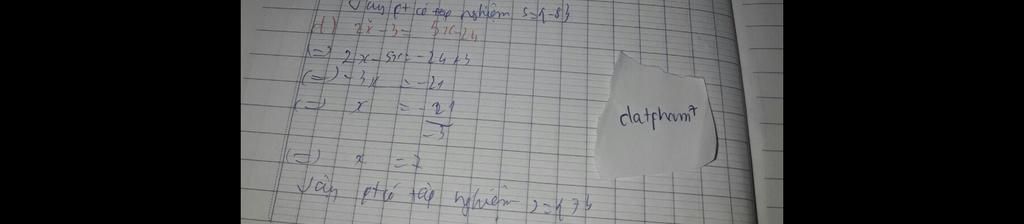 Vậy pt có tập nghiệm S={-8}
d) 2x-3 = 5x-24
(=) 2x-5x = -24+3
(=) -3x = -21
(=) x = -21/-3
(=) x = 7
Vậy pt có tập nghiệm S={7}
datpham7